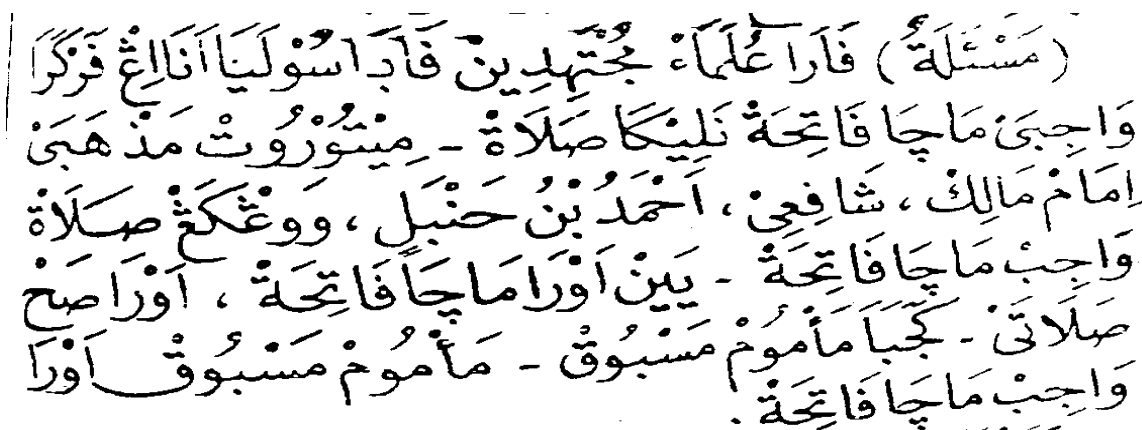 (مَسْئَلَةٌ) فَارَا عُلَمَاءْ مُجْتَهِدِينْ فَاݘَا سُوْلَيَا اَنَا اِڠْ فَرْكَرَا
وَاجِبَىْ مَاچَا فَاتِحَةْ نَلِيْكَا صَلَاةْ - مِيْتُوْرُوتْ مَذْهَبَىْ
اِمَامْ مَالِكْ، شَافِعِىْ، اَحْمَدُ بْنُ حَنْبَلِ، وَوْڠْكَڠْ صَلَاةْ
وَاجِبْ مَاچَا فَاتِحَةْ - يَيْنْ اَوْرَا مَاچَا فَاتِحَةْ، اَوْرَا صَحْ
صَلَاتَىْ - كَجَبَا مَأْمُومْ مَسْبُوقْ - مَأْمُومْ مَسْبُوقْ اَوْرَا
وَاجِبْ مَاچَا فَاتِحَةْ.